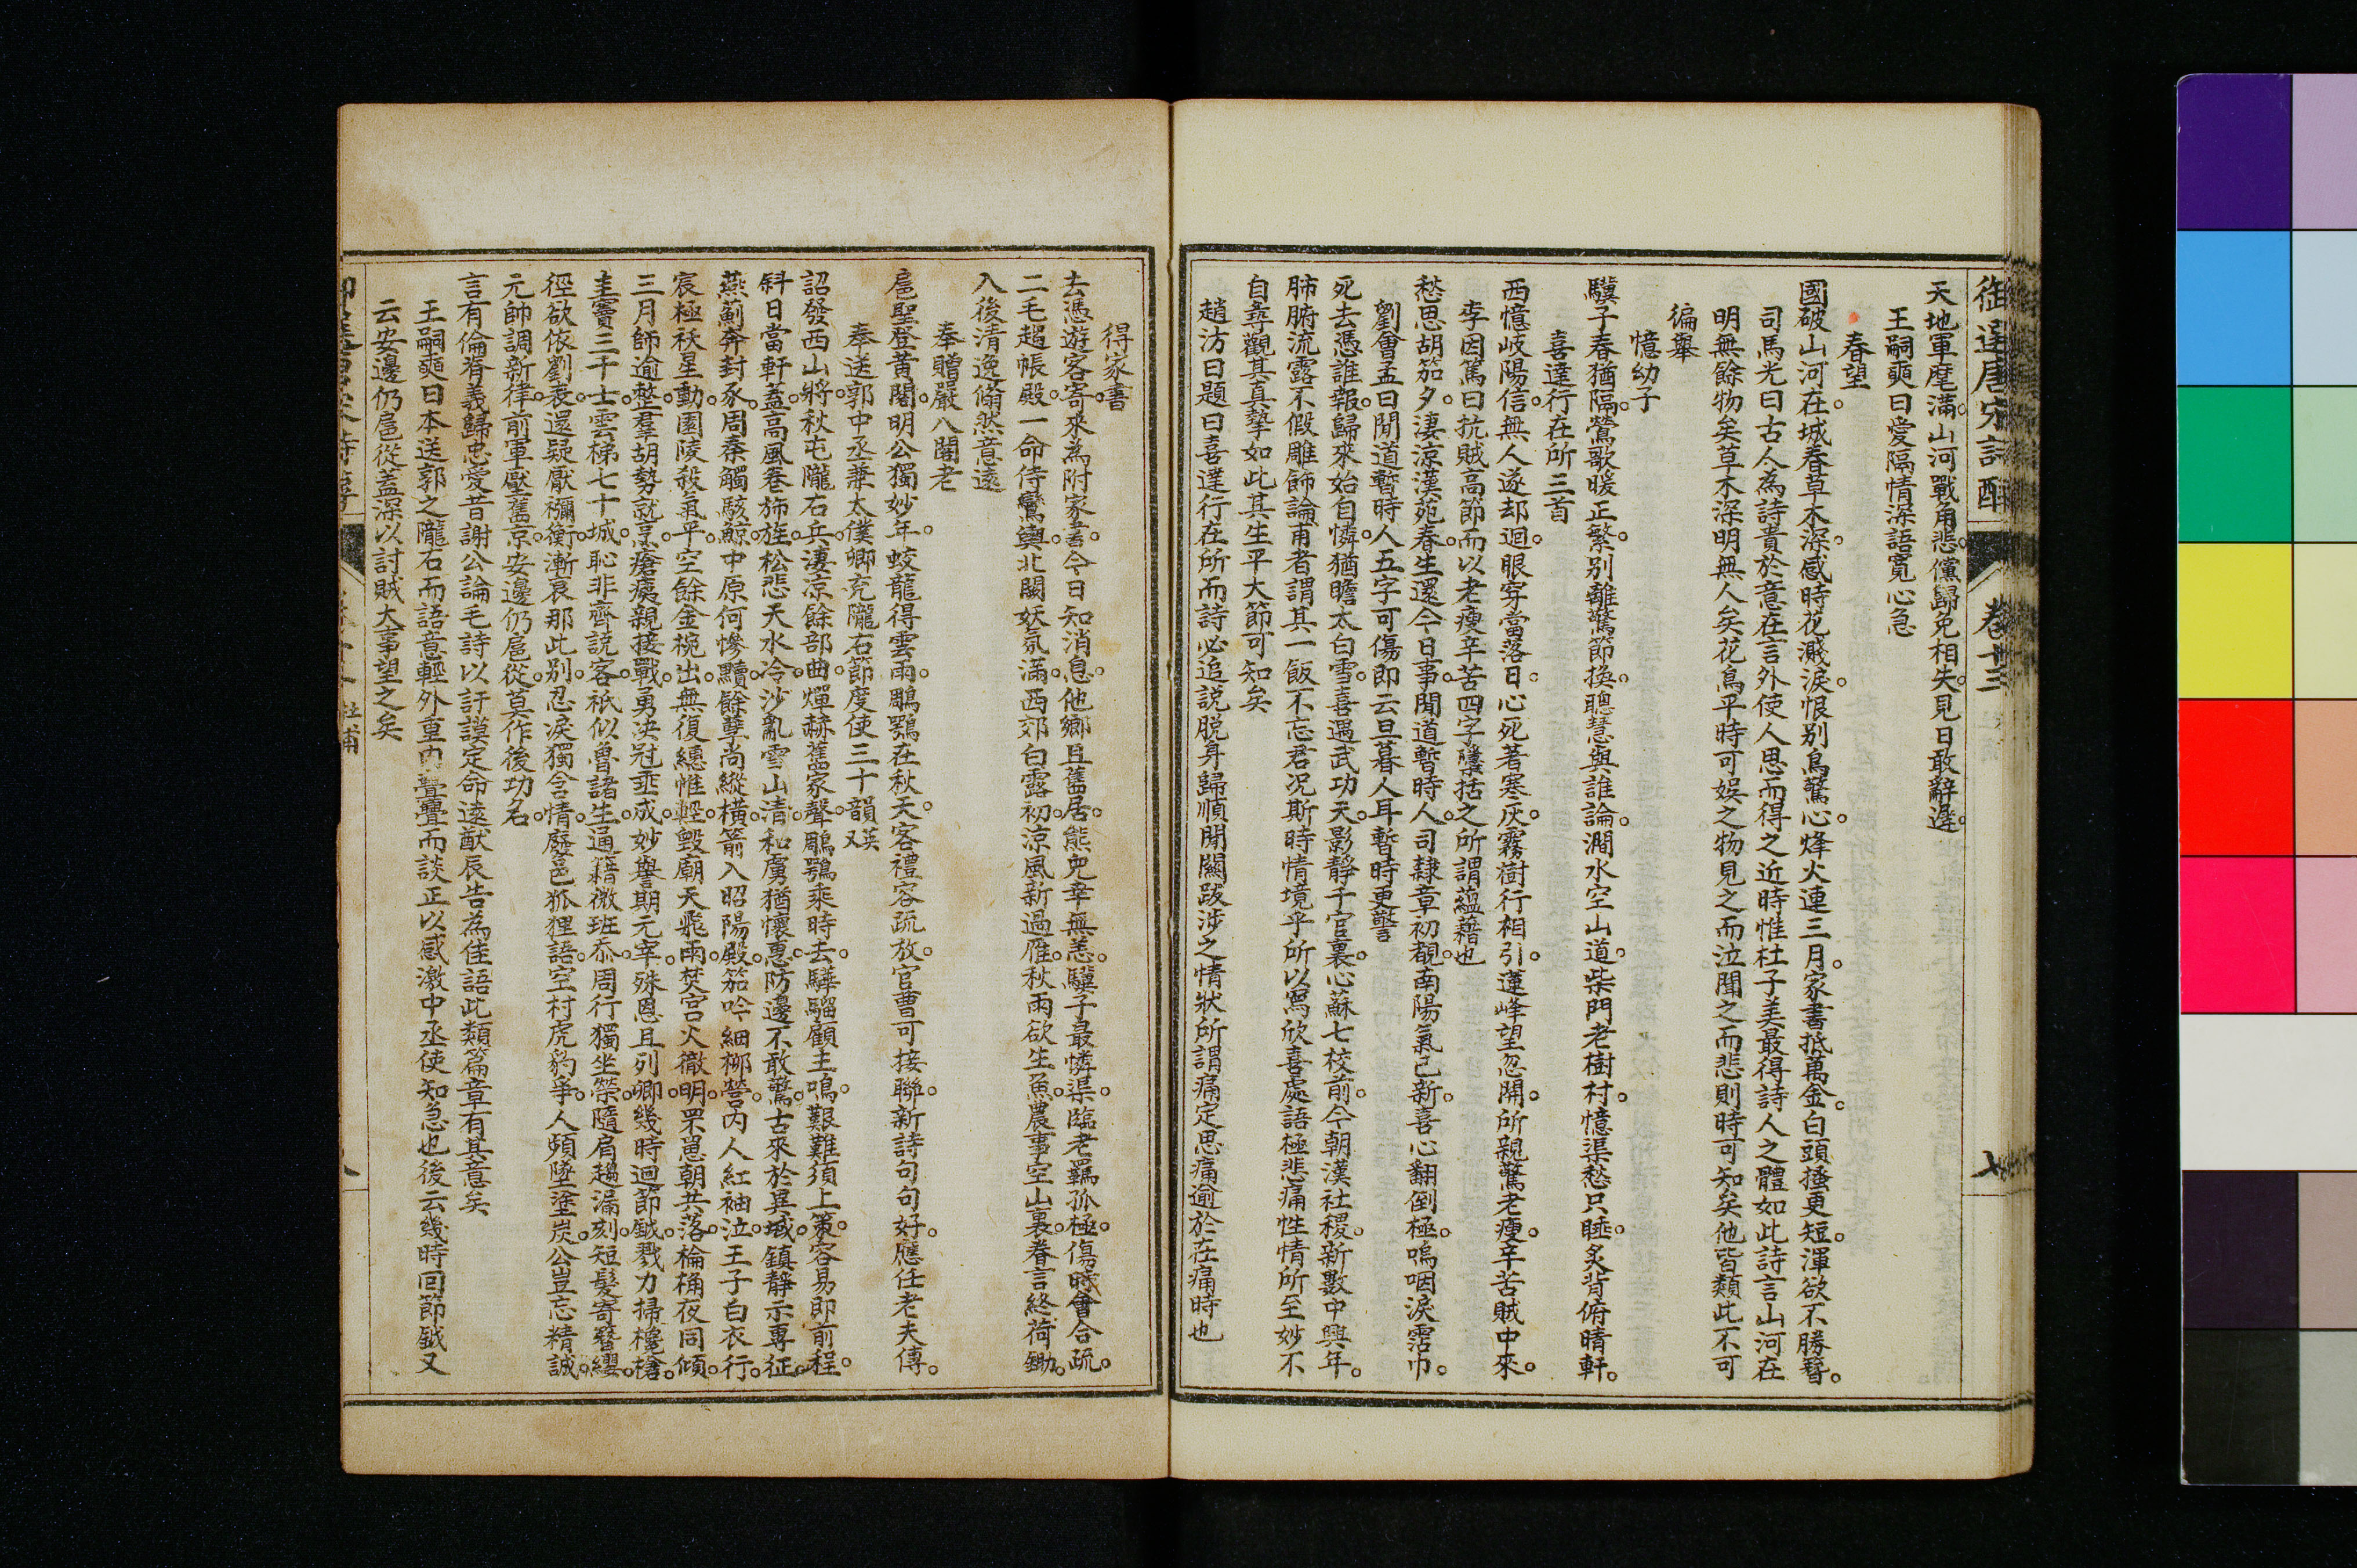 御選唐宋詩醇
卷十三
七
天地軍麾滿山河戰角悲儻歸免相失見日敢辭遲
王嗣奭曰愛隔情深語寬心急
春望
國破山河在城春草木深感時花濺淚恨別鳥驚心烽火連三月家書抵萬金白頭搔更短渾欲不勝簪
司馬光曰古人為詩貴於意在言外使人思而得之近時惟杜子美最得詩人之體如此詩言山河在
明無餘物矣草木深明無人矣花鳥平時可娛之物見之而泣聞之而悲則時可知矣他皆類此不可
徧舉
憶幼子
驥子春猶隔鶯歌暖正繁別離驚節換聰慧與誰論澗水空山道柴門老樹村憶渠愁只睡炙背俯晴軒
喜達行在所三首
西憶岐陽信無人遂却迴眼穿當落日心死著寒灰霧樹行相引蓮峰望忽開所親驚老瘦辛苦賊中來
李因篤曰抗賊高節而以老瘦辛苦四字檃括之所謂蘊藉也
愁思胡笳夕淒涼漢苑春生還今日事間道暫時人司隸章初覩南陽氣已新喜心翻倒極嗚咽淚霑巾
劉會孟曰間道暫時人五字可傷即云旦暮人耳暫時更警
死去憑誰報歸來始自憐猶瞻太白雪喜遇武功天影靜千官裏心蘇七校前今朝漢社稷新數中興年
肺腑流露不假雕飾論甫者謂其一飯不忘君況斯時情境乎所以寫欣喜處語極悲痛性情所至妙不
自尋觀其真摯如此其生平大節可知矣
趙汸曰題曰喜達行在所而詩必追説脱身歸順間關跋涉之情狀所謂痛定思痛逾於在痛時也
得家書
去憑遊客寄來為附家書今日知消息他鄉且舊居熊兒幸無恙驥子最憐渠臨老羈孤極傷時會合疏
二毛趨帳殿一命侍鸞輿北闕妖氛滿西郊白露初涼風新過雁秋雨欲生魚農事空山裏眷言終荷鋤
入後清逸翛然意遠
奉贈嚴八閣老
扈聖登黃閣明公獨妙年蛟龍得雲雨鵰鶚在秋天客禮容疏放官曹可接聯新詩句句好應任老夫傳
奉送郭中丞兼太僕卿充隴右節度使三十韻英乂
詔發西山將秋屯隴右兵淒涼餘部曲燀赫舊家聲鵰鶚乘時去驊騮顧主鳴艱難須上策容易即前程
斜日當軒蓋高風卷旆旌松悲天水冷沙亂雪山清和虜猶懷惠防邊不敢驚古來於異域鎮靜示專征
燕薊奔封豕周秦觸駭鯨中原何慘黷餘孽尚縱橫箭入昭陽殿笳吟細柳營內人紅袖泣王子白衣行
宸極祅星動園陵殺氣平空餘金椀出無復繐帷輕毀廟天飛雨焚宮火徹明罘罳朝共落棆桷夜同傾
三月師逾整羣胡勢就烹瘡痍親接戰勇決冠垂成妙譽期元宰殊恩且列卿幾時迴節鉞戮力掃欃槍
圭竇三千士雲梯七十城恥非齊説客祇似魯諸生通籍微班忝周行獨坐榮隨肩趨漏刻短髮寄簪纓
徑欲依劉表還疑厭禰衡漸衰那此別忍淚獨含情廢邑狐狸語空村虎豹爭人頻墜塗炭公豈忘精誠
元帥調新律前軍壓舊京安邊仍扈從莫作後功名
言有倫脊義歸忠愛昔謝公論毛詩以訏謨定命遠猷辰告為佳語此類篇章有其意矣
王嗣奭曰本送郭之隴右而語意輕外重內亹亹而談正以感激中丞使知急也後云幾時回節鉞又
云安邊仍扈從蓋深以討賊大事望之矣
杜甫